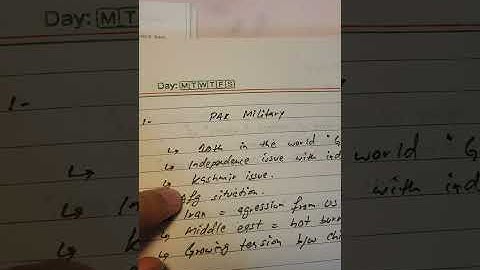 Day: M T W T F S
1-
PAK Military
↳ 20th in the world "G
↳ Independence issue with ind
↳ Kashmir issue.
Afg situation.
Iran = agression from US
↳ Middle east = hot burn
↳ Growing tension b/w Chi